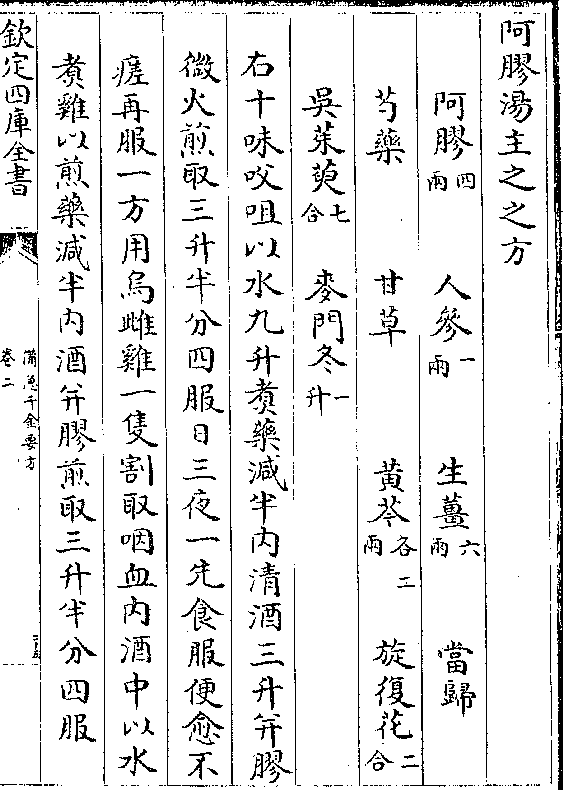 阿膠湯主之之方
阿膠四兩 人參一兩 生薑六兩 當歸
芍藥 甘草 黃芩各二兩 旋復花二合
吳茱萸七合 麥門冬一升
右十味㕮咀以水九升煑藥減半内清酒三升并膠
微火煎取三升半分四服日三夜一先食服便愈不
瘥再服一方用烏雌雞一隻割取咽血内酒中以水
煑雞以煎藥減半内酒并膠煎取三升半分四服
欽定四庫全書
備急千金要方
卷二